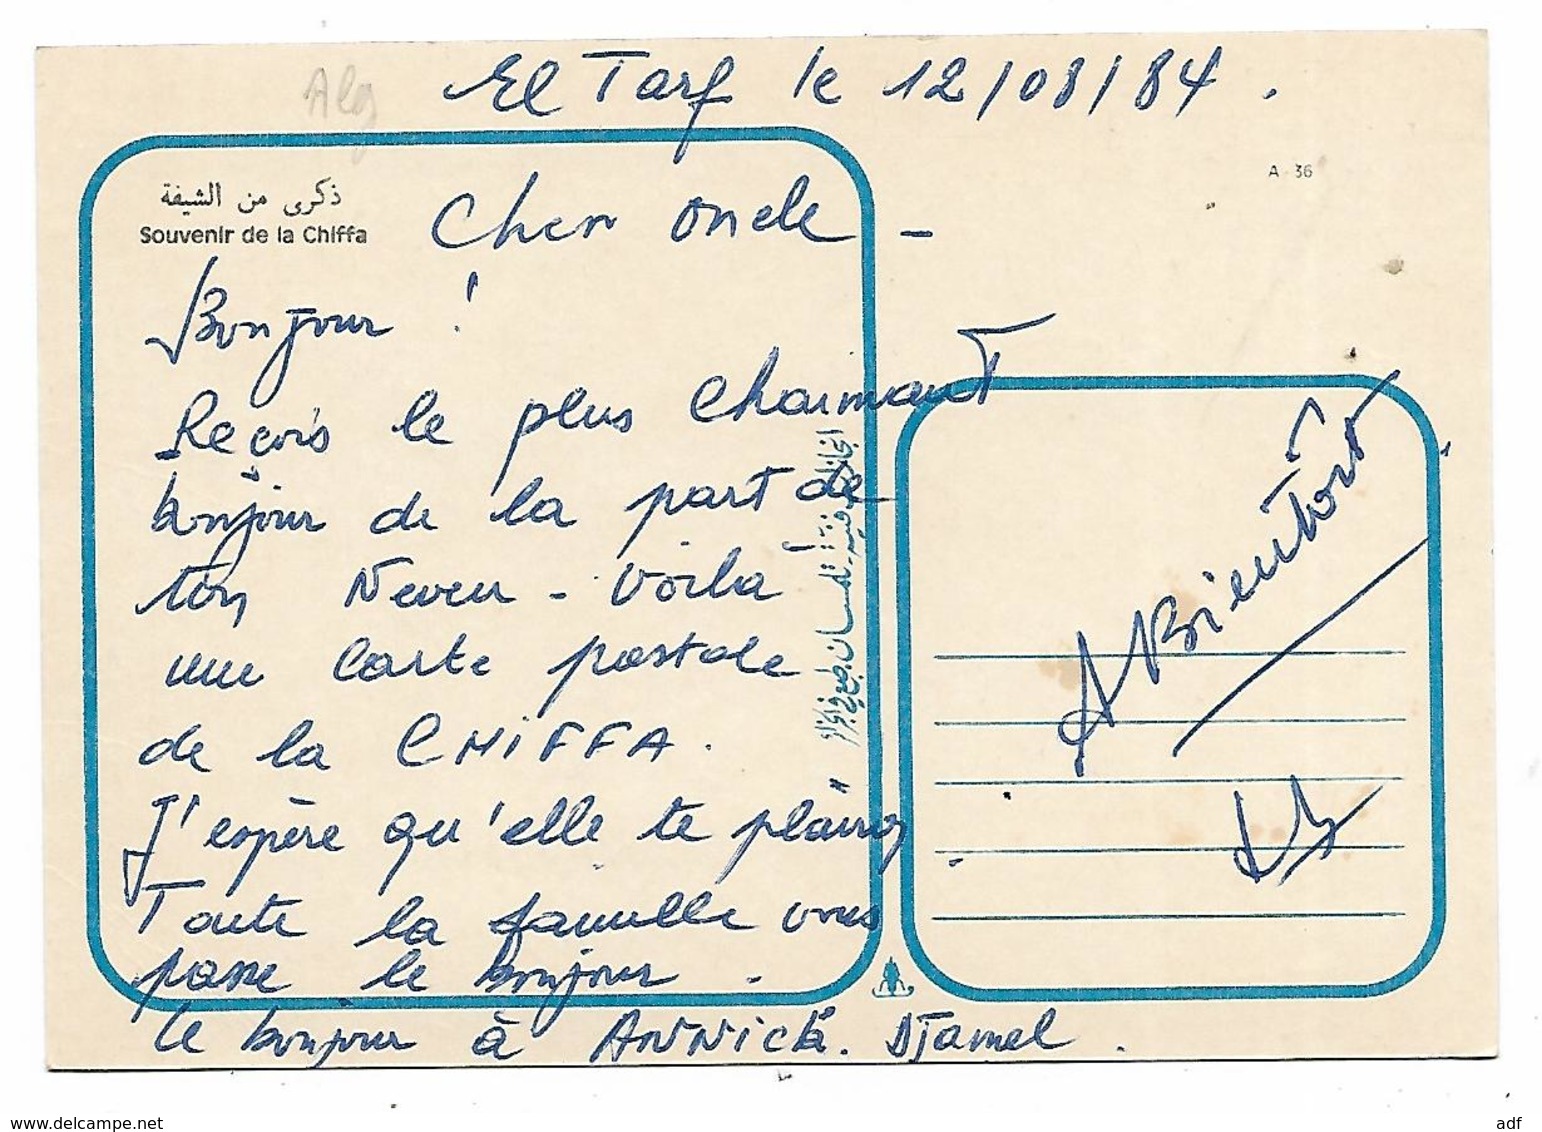 Alg
El Tarf le 12/08/84.
A - 36
ذكرى من الشيفة
Souvenir de la Chiffa
Cher oncle -
Bonjour !
Reçois le plus charmant
bonjour de la part de
ton Neveu - Voilà
une carte postale
de la CHIFFA.
J'espère qu'elle te plaira.
Toute la famille vous
passe le bonjour.
le bonjour à ANNick. DJamel.
A Bientôt
www.delcampe.net
adf